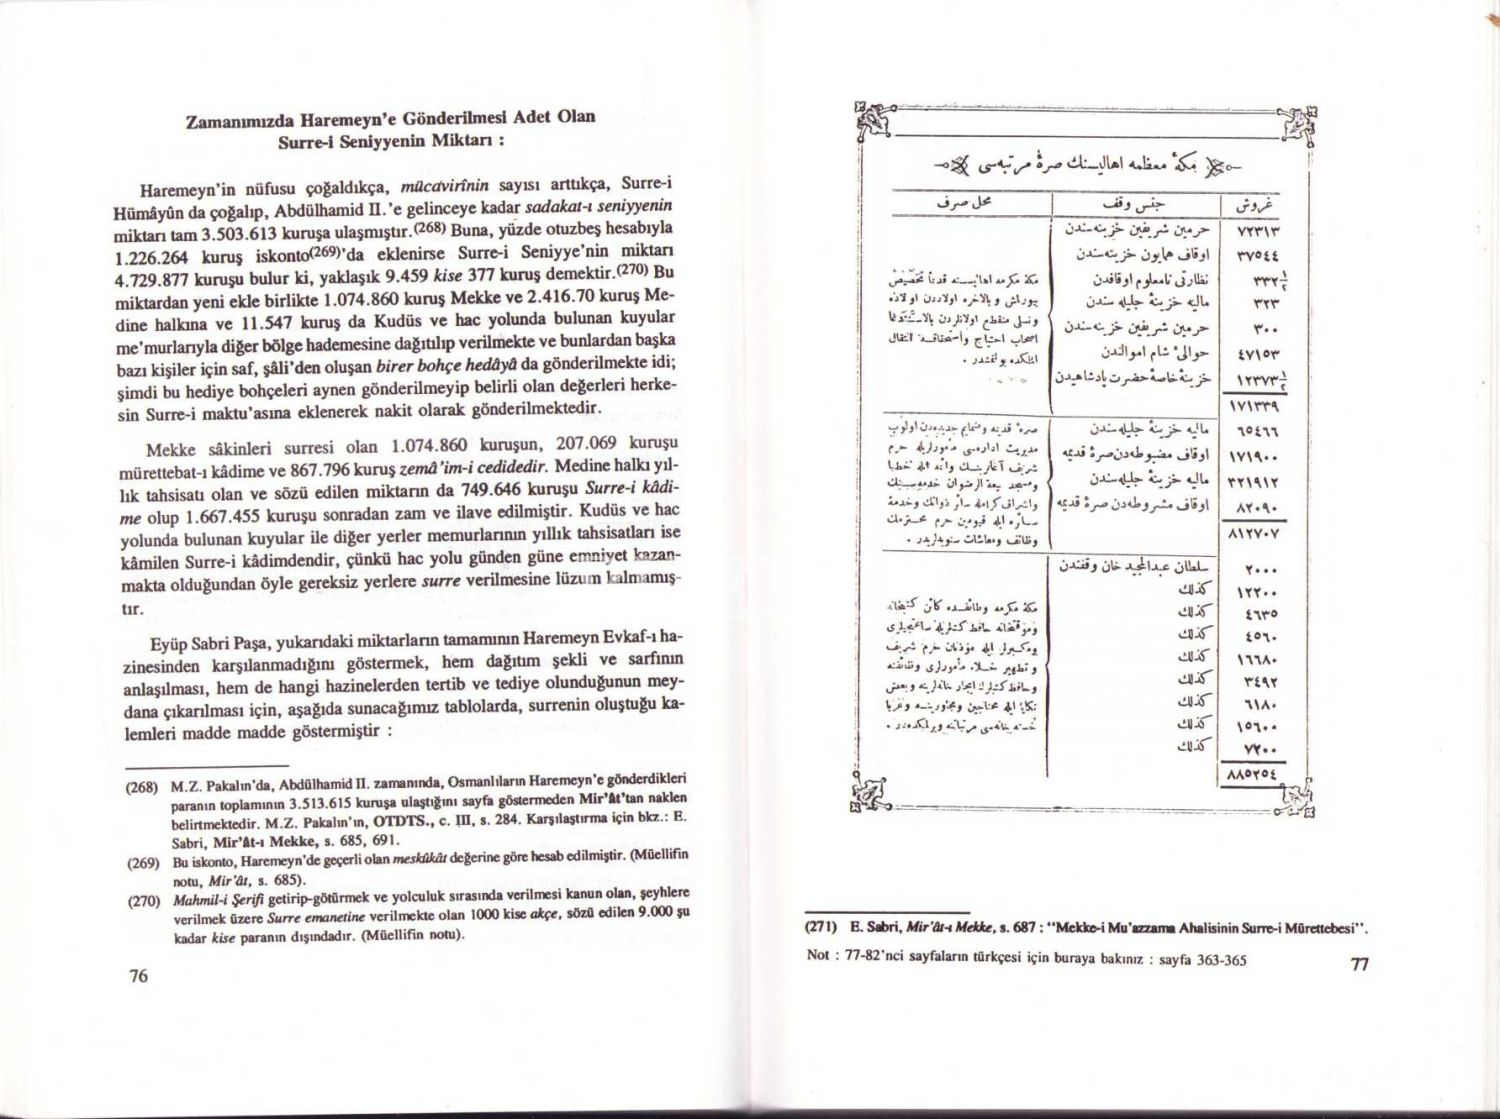 Zamanımızda Haremeyn'e Gönderilmesi Adet Olan
Surre-i Seniyyenin Miktarı :
Haremeyn'in nüfusu çoğaldıkça, mücavirînin sayısı arttıkça, Surre-i
Hümâyûn da çoğalıp, Abdülhamid II.'e gelinceye kadar sadakat-ı seniyyenin
miktarı tam 3.503.613 kuruşa ulaşmıştır.(268) Buna, yüzde otuzbeş hesabıyla
1.226.264 kuruş iskonto(269)'da eklenirse Surre-i Seniyye'nin miktarı
4.729.877 kuruşu bulur ki, yaklaşık 9.459 kise 377 kuruş demektir.(270) Bu
miktardan yeni ekle birlikte 1.074.860 kuruş Mekke ve 2.416.70 kuruş Me-
dine halkına ve 11.547 kuruş da Kudüs ve hac yolunda bulunan kuyular
me'murlarıyla diğer bölge hademesine dağıtılıp verilmekte ve bunlardan başka
bazı kişiler için saf, şâli'den oluşan birer bohçe hedâyâ da gönderilmekte idi;
şimdi bu hediye bohçeleri aynen gönderilmeyip belirli olan değerleri herke-
sin Surre-i maktu'asına eklenerek nakit olarak gönderilmektedir.
Mekke sâkinleri surresi olan 1.074.860 kuruşun, 207.069 kuruşu
mürettebat-ı kâdime ve 867.796 kuruş zemâ'im-i cedidedir. Medine halkı yıl-
lık tahsisatı olan ve sözü edilen miktarın da 749.646 kuruşu Surre-i kâdi-
me olup 1.667.455 kuruşu sonradan zam ve ilave edilmiştir. Kudüs ve hac
yolunda bulunan kuyular ile diğer yerler memurlarının yıllık tahsisatları ise
kâmilen Surre-i kâdimdendir, çünkü hac yolu günden güne emniyet kazan-
makta olduğundan öyle gereksiz yerlere surre verilmesine lüzum kalmamış-
tır.
Eyüp Sabri Paşa, yukarıdaki miktarların tamamının Haremeyn Evkaf-ı ha-
zinesinden karşılanmadığını göstermek, hem dağıtım şekli ve sarfının
anlaşılması, hem de hangi hazinelerden tertib ve tediye olunduğunun mey-
dana çıkarılması için, aşağıda sunacağımız tablolarda, surrenin oluştuğu ka-
lemleri madde madde göstermiştir :
(268) M.Z. Pakalın'da, Abdülhamid II. zamanında, Osmanlıların Haremeyn'e gönderdikleri
paranın toplamının 3.513.615 kuruşa ulaştığını sayfa göstermeden Mir'ât'tan naklen
belirtmektedir. M.Z. Pakalın'ın, OTDTS., c. III, s. 284. Karşılaştırma için bkz.: E.
Sabri, Mir'ât-ı Mekke, s. 685, 691.
(269) Bu iskonto, Haremeyn'de geçerli olan meskûkât değerine göre hesab edilmiştir. (Müellifin
notu, Mir'ât, s. 685).
(270) Mahmil-i Şerifi getirip-götürmek ve yolculuk sırasında verilmesi kanun olan, şeyhlere
verilmek üzere Surre emanetine verilmekte olan 1000 kise akçe, sözü edilen 9.000 şu
kadar kise paranın dışındadır. (Müellifin notu).
76
مكۀ معظمه اهاليسنك صرۀ مرتبه‌سی
غروش جنس وقف محل صرف
٧٢٣١٣ حرمين شريفين خزينه‌سندن
٣٧٥٤٤ اوقاف همايون خزينه‌سندن
٣٣٢ ١/٢ نظارتی نامعلوم اوقافدن
٣٢٣ ماليه خزينۀ جليله سندن
٣٠٠ حرمين شريفين خزينه‌سندن
٤٧١٥٣ حوالئ شام اموالندن
١٢٣٧٣ ١/٢ خزينۀ خاصۀ حضرت پادشاهيدن
مكۀ مكرمه اهاليسنه قدما تخصيص
بيوراش و بالاخره اولاددن اولاده
ونسلی منقطع اولانلردن بالاستدعا
اصحاب احتياج واستحقاقه انتقال
ايتمكده بولنمشدر .
١٧١٣٣٩
٦٥٤٦٦ ماليه خزينۀ جليله‌سندن
١٧١٩٠٠ اوقاف مضبوطه‌دن صرۀ قديمه
٣٢١٩١٢ ماليه خزينۀ جليله‌سندن
٨٢٠٩٠ اوقاف مشروطه‌دن صرۀ قديمه
صرۀ قديمه وضمايم جديده‌دن اولوب
مديريت اداره‌سی مأمورلريله حرم
شريف آغارينك وائمه ايله خطبا
ومسجد بيعة الرضوان خدمه‌سينك
واشراف كرامله سائر ذواتك وخدمۀ
سائره ايله قيومين حرم محترمك
وظائف ومعاشات سنويه‌لريدر .
٨١٢٧٠٧
٢٠٠٠ سلطان عبدالمجيد خان وقفندن
١٢٢٠٠ كذلك
٤٦٣٥ كذلك
٤٥٦٠ كذلك
١٦٦٨٠ كذلك
٣٤٩٢ كذلك
٦١٨٠ كذلك
١٥٦٠٠ كذلك
٧٢٠٠ كذلك
مكۀ مكرمه وطائفده كائن كتبخانه
وموقتخانه حافظ كتبلريله ساعتجيلری
ومكبرلر ايله مؤذنان حرم شريف
و تطهير خلاء مأمورلری وظائفنه
٨٨٥٢٥٤
(271) E. Sabri, Mir'ât-ı Mekke, s. 687 : "Mekke-i Mu'azzama Ahalisinin Surre-i Mürettebesi".
Not : 77-82'nci sayfaların türkçesi için buraya bakınız : sayfa 363-365
77